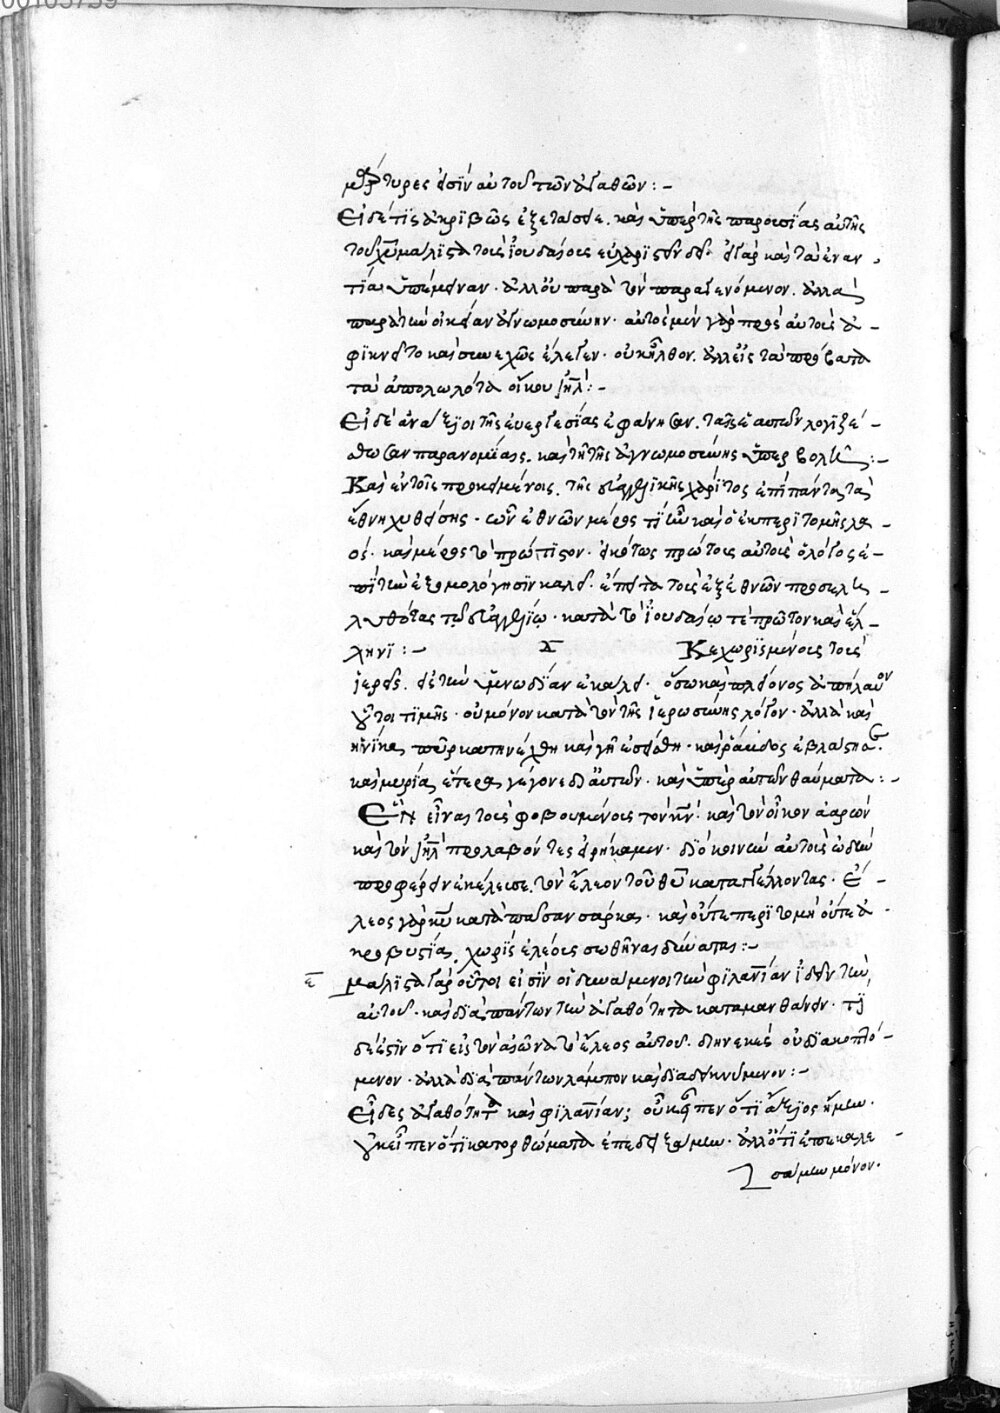 00105759
μάρτυρές εἰσιν αὐτοῦ τῶν ἀγαθῶν :-
Εἰ δέ τις ἀκριβῶς ἐξετάσειε. καὶ ὑπὲρ τῆς παρουσίας αὐτῆς
τοῦ χῦ μάλιστα τοὺς ἰουδαίους εὐχαριστεῖν δεῖ· εἰ γὰρ καὶ τὰ ἐναν
τία ὑπέμειναν· ἀλλ' οὐ παρὰ τὸν παραγενόμενον. ἀλλὰ
παρὰ τὴν οἰκείαν ἀγνωμοσύνην· αὐτὸς μὲν γὰρ πρὸς αὐτοὺς ἀ-
φίκνειτο καὶ συνεχῶς ἔλεγεν· οὐκ ἦλθον. ἀλλ' εἰς τὰ πρόβατα
τὰ ἀπολωλότα οἴκου ἰηλ :-
Εἰ δὲ ἀνάξιοι τῆς εὐεργεσίας ἐφάνησαν. ταῖς ἑαυτῶν λογιζέ-
σθωσαν παρανομίαις. καὶ τῇ τῆς ἀγνωμοσύνης ὑπερβολῇ :-
Καὶ ἐν τοῖς προκειμένοις. τῆς εὐαγγελικῆς χάριτος ἐπὶ πάντα τὰ
ἔθνη χυθείσης· ὧν ἐθνῶν μέρος τι ἦν καὶ ὁ ἐκ περιτομῆς λα-
ός· καὶ μέρος τὸ πρώτιστον· εἰκότως πρώτους αὐτοὺς ὁ λόγος ἐ-
πὶ τὴν ἐξομολόγησιν καλεῖ· ἔπειτα τοὺς ἐξ ἐθνῶν προσελη-
λυθότας τῷ εὐαγγελίῳ· κατὰ τὸ ἰουδαίῳ τε πρῶτον καὶ ἕλ-
ληνι :- Κεχωρισμένους τοὺς
ἱερεῖς. εἰς τὴν ὑμνωδίαν ἐκάλει· ὅσω καὶ πλείονος ἀπήλαυον
οὗτοι τιμῆς· οὐ μόνον κατὰ τὸν τῆς ἱερωσύνης λόγον· ἀλλὰ καὶ
ἡνίκα πῦρ κατηνέχθη καὶ γῆ ἐσείσθη· καὶ ῥάβδος ἐβλάστησε.
καὶ μυρία ἕτερα γέγονε δι' αὐτῶν· καὶ ὑπὲρ αὐτῶν θαύματα :-
Ἓν εἶναι τοὺς φοβουμένους τὸν κν· καὶ τὸν οἶκον ἀαρὼν
καὶ τὸν ἰηλ προλαβόντες εἰρήκαμεν· διὸ κοινὴν αὐτοὺς ὠδὴν
προφέρειν ἐκέλευσε. τὸν ἔλεον τοῦ θῦ καταγγέλλοντας· ἔ-
λεος γὰρ κῦ κατὰ πᾶσαν σάρκα· καὶ οὔτε περιτομὴ οὔτε ἀ-
κροβυστία. χωρὶς ἐλέους σωθῆναι δύναται :-
ε μάλιστα γὰρ οὗτοι εἰσὶν οἱ δυνάμενοι τὴν φιλανίαν ἰδεῖν τὴν
αὐτοῦ· καὶ διὰ πάντων τὴν ἀγαθότητα καταμανθάνειν· τί
δέ ἐστιν ὅτι εἰς τὸν αἰῶνα τὸ ἔλεος αὐτοῦ. διηνεκὲς οὐ διακοπτό-
μενον· ἀλλὰ διὰ πάντων λάμπον καὶ διαδεικνύμενον :-
Εἶδες ἀγαθότητα καὶ φιλανίαν; οὐκ εἶπεν ὅτι ἄξιος ἤμην.
οὐκ εἶπεν ὅτι κατορθώματα ἐπεδειξάμην· ἀλλ' ὅτι ἐπεκαλε-
σάμην μόνον·